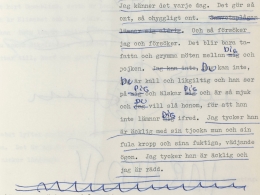 Jag känner det varje dag. Det gör så
ont, så obyggligt ont.
Och nå försöker
jag och försöker. Det blir bara to-
fattn och grymma möten mellan Dig och
pojken. Jag kan inte, Du kan inte,
Du är kall och likgiltig och han ser
på Dig och älskar Dig och han är så
sjuk och Du vill slå honom, för att han
inte lämnar Dig ifred. Jag tycker han
är äcklig med sin tjocka mun och sin
fula kropp och sina fuktiga, vädjande
ögon. Jag tycker han är äcklig och
jag är rädd.